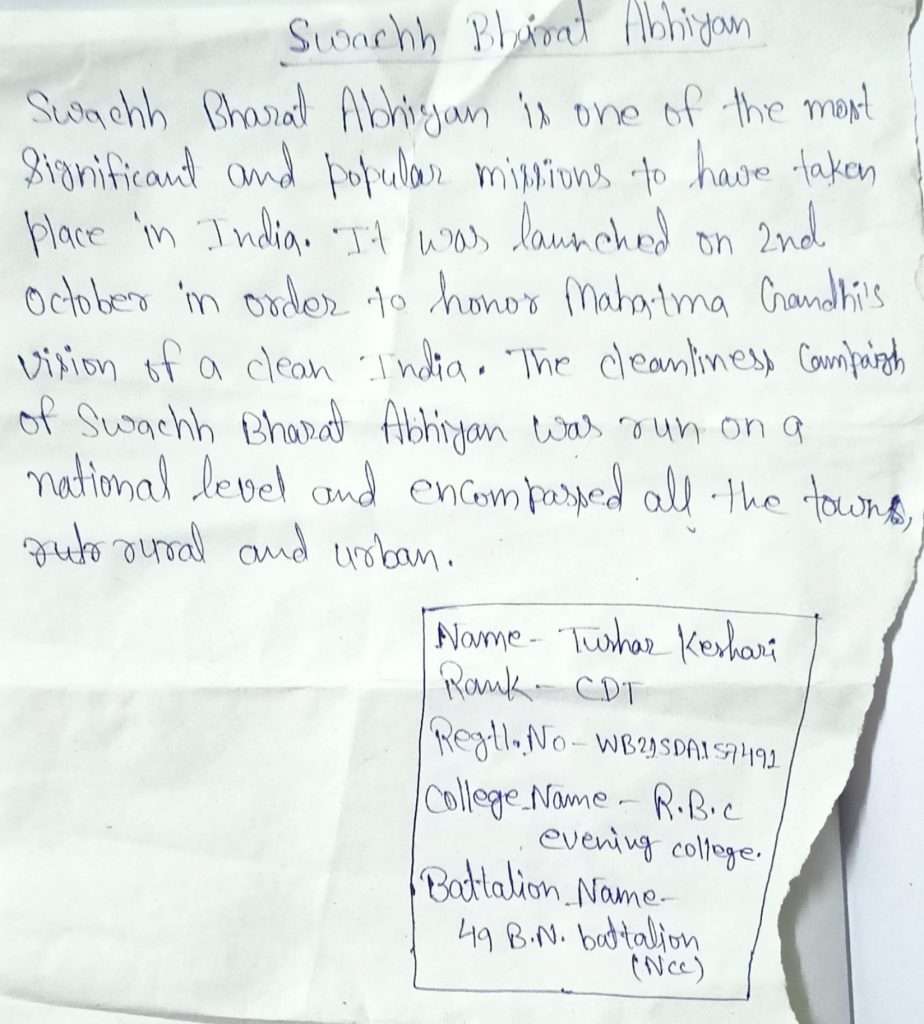 Swachh Bharat Abhiyan
Swachh Bharat Abhiyan is one of the most
Significant and popular missions to have taken
place in India. It was launched on 2nd
October in order to honor Mahatma Gandhi's
vision of a clean India. The cleanliness Campaigh
of Swachh Bharat Abhiyan was run on a
national level and encompassed all the towns,
rural and urban.
Name - Tushar Keshari
Rank - CDT
Regtl. No - WB21SDA157491
College Name - R.B.C
evening college.
Battalion Name -
49 B.N. battalion
(NCC)